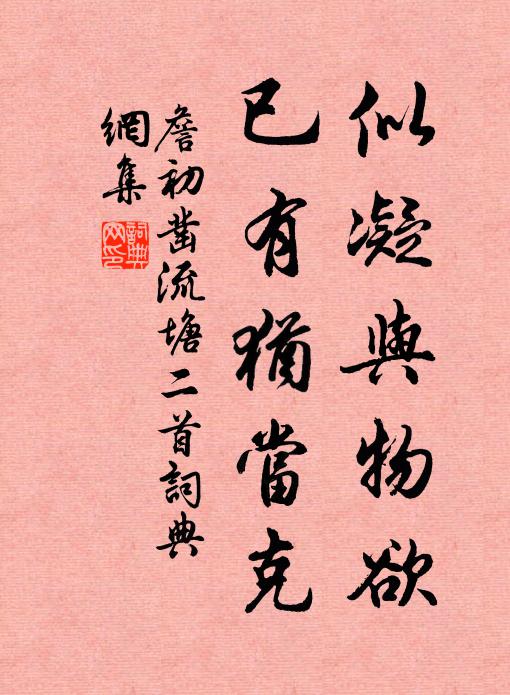 似凝與物欲
已有猶當克
詹初蓄流塘二首詞典
網集
詞典
网印